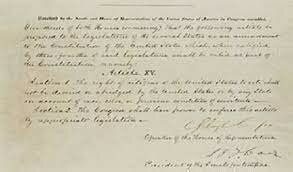 Resolved by the Senate and House of Representatives of the United States of America in Congress assembled,
(two-thirds of both Houses concurring) That the following article be
proposed to the legislatures of the several States as an amendment
to the Constitution of the United States which, when ratified
by three-fourths of said legislatures shall be valid as part of
the Constitution, namely:
Article XV.
Section 1. The right of citizens of the United States to vote shall
not be denied or abridged by the United States or by any State
on account of race, color, or previous condition of servitude—
Section 2. The Congress shall have power to enforce this article
by appropriate legislation—
Speaker of the House of Representatives.
President of the Senate pro tempore.